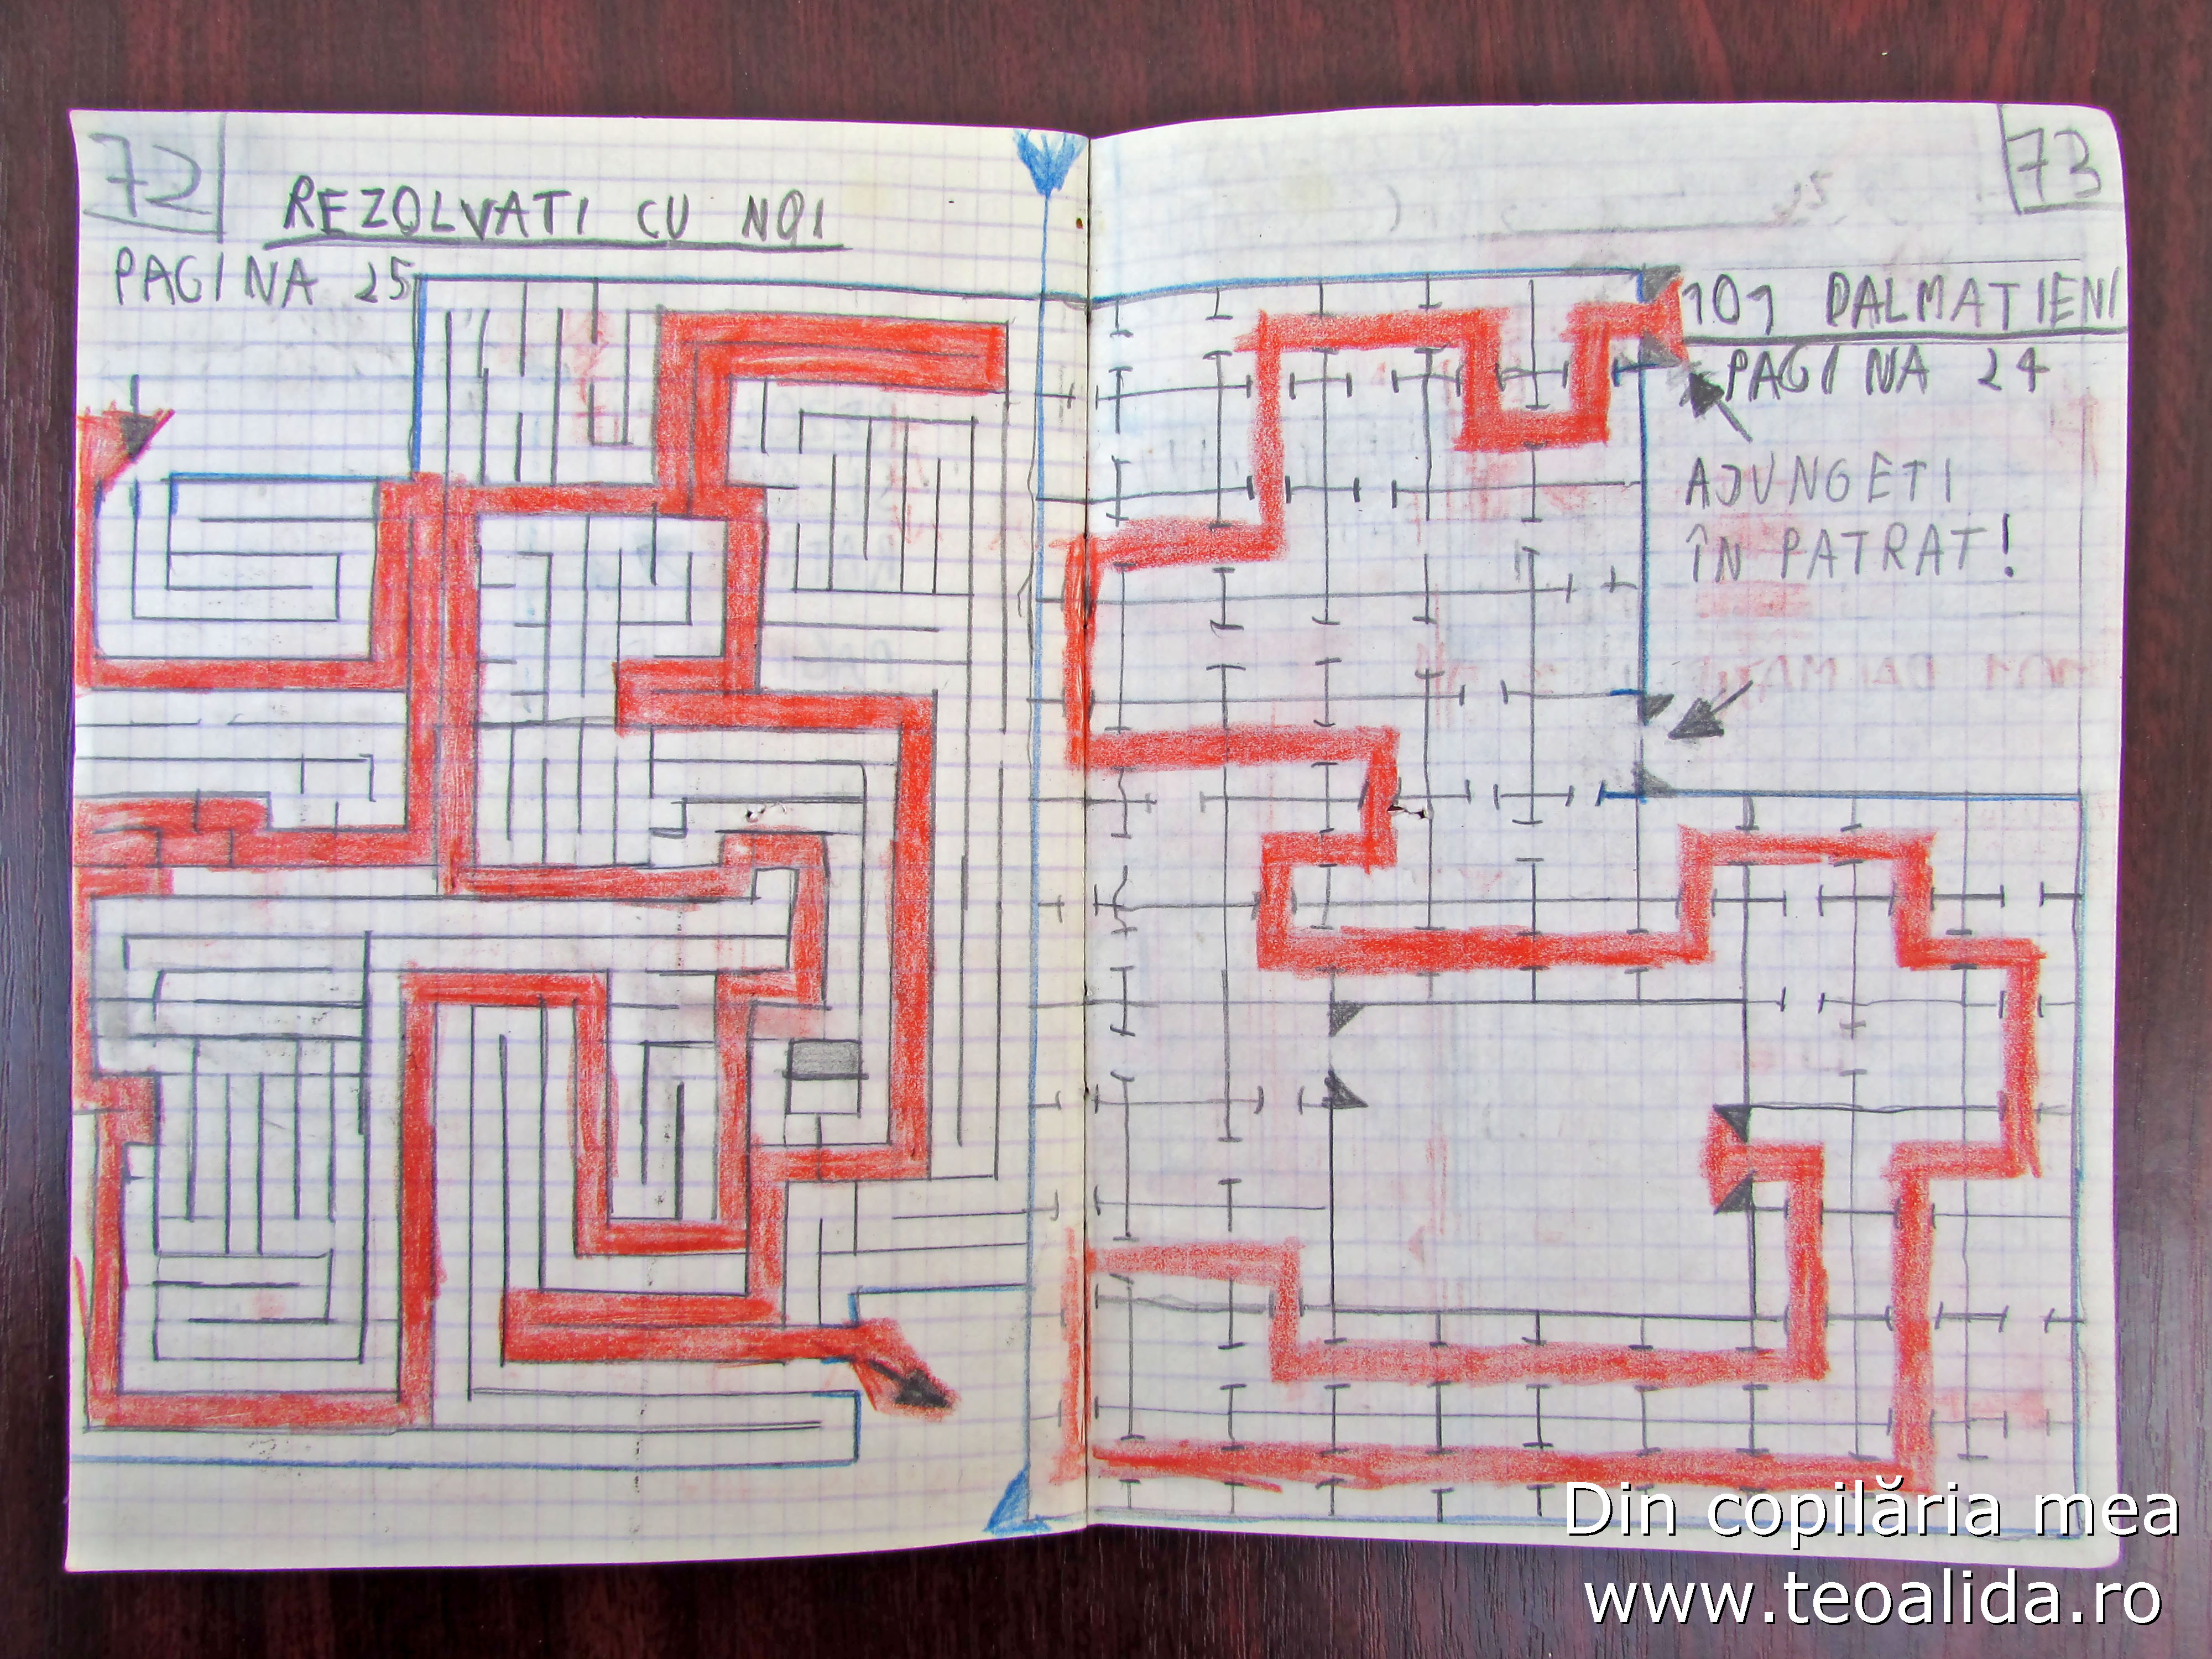 72
REZOLVATI CU NOI
PAGINA 25
73
101 DALMATIENI
PAGINA 24
AJUNGETI
ÎN PATRAT!
Din copilăria mea
www.teoalida.ro